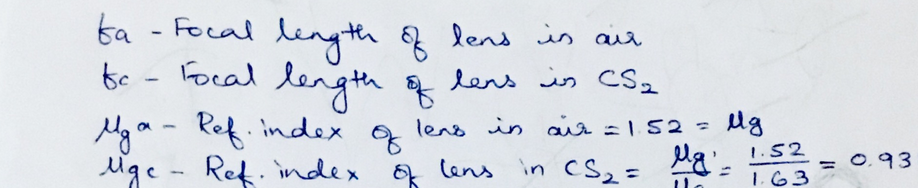 fa - Focal length of lens in air
fc - Focal length of lens in CS₂
μga - Ref. index of lens in air = 1.52 = μg
μgc - Ref. index of lens in CS₂ = μg/μc = 1.52/1.63 = 0.93